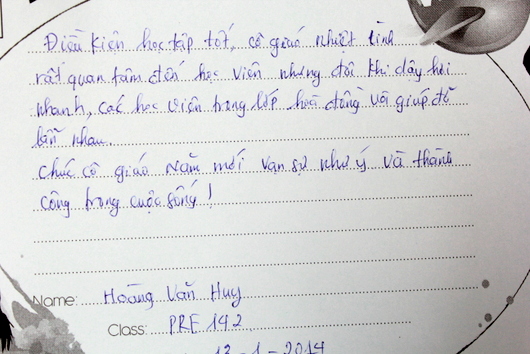 Điều kiện học tập tốt, cô giáo nhiệt tình
rất quan tâm đến học viên nhưng đôi khi dạy hơi
nhanh, các học viên trong lớp hoà đồng và giúp đỡ
lẫn nhau.
Chúc cô giáo năm mới vạn sự như ý và thành
công trong cuộc sống!
Name: Hoàng Văn Huy
Class: PRE 142
13-1-2014